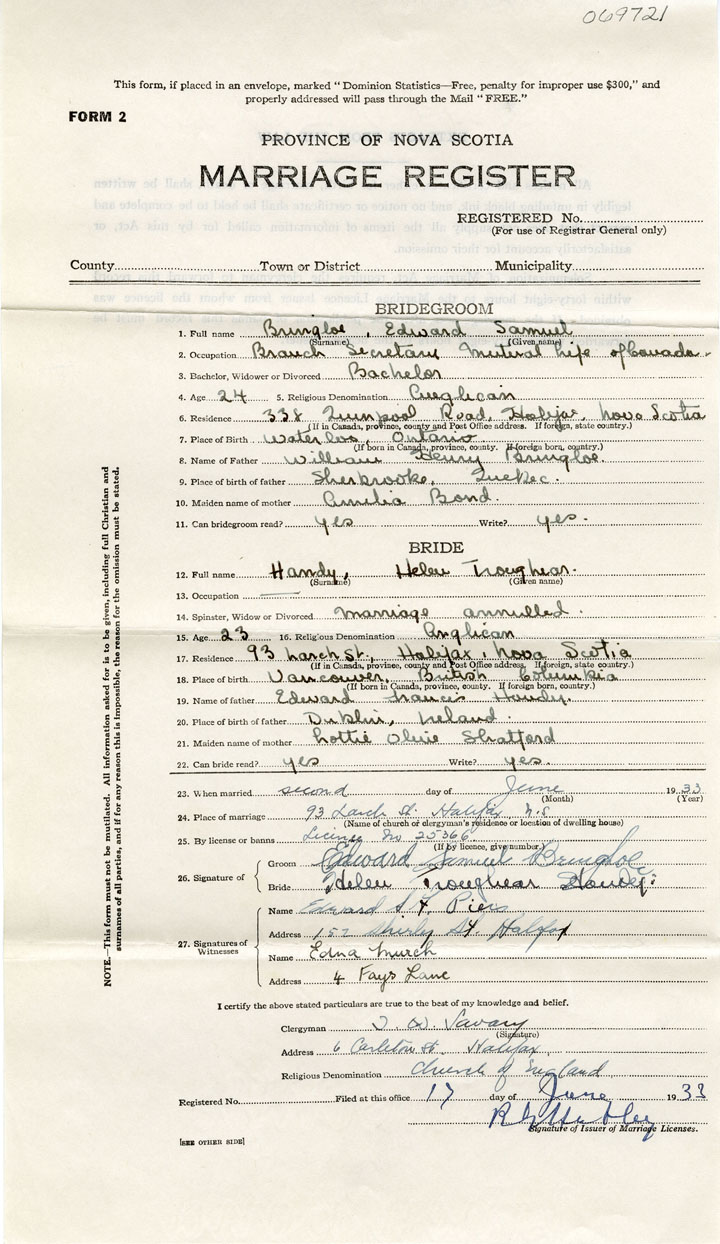 069721
This form, if placed in an envelope, marked "Dominion Statistics—Free, penalty for improper use $300," and
properly addressed will pass through the Mail "FREE."
FORM 2
PROVINCE OF NOVA SCOTIA
MARRIAGE REGISTER
REGISTERED No.
(For use of Registrar General only)
County Town or District Municipality
BRIDEGROOM
1. Full name Bringloe, Edward Samuel
(Surname) (Given name)
2. Occupation Branch Secretary Mutual Life of Canada.
3. Bachelor, Widower or Divorced Bachelor
4. Age 24 5. Religious Denomination Anglican
6. Residence 338 Quinpool Road, Halifax, Nova Scotia
(If in Canada, province, county and Post Office address. If foreign, state country.)
7. Place of Birth Waterloo, Ontario
(If born in Canada, province, county. If foreign born, country.)
8. Name of Father William Henry Bringloe.
9. Place of birth of father Sherbrooke, Quebec.
10. Maiden name of mother Amelia Bond.
11. Can bridegroom read? yes Write? yes.
BRIDE
12. Full name Handy, Helen Troughear.
(Surname) (Given name)
13. Occupation
14. Spinster, Widow or Divorced marriage annulled.
15. Age 23 16. Religious Denomination Anglican
17. Residence 93 Larch St., Halifax, Nova Scotia
(If in Canada, province, county and Post Office address. If foreign, state country.)
18. Place of birth Vancouver, British Columbia
(If born in Canada, province, county. If foreign born, country.)
19. Name of father Edward Francis Handy.
20. Place of birth of father Dublin, Ireland.
21. Maiden name of mother Lottie Olive Stratford
22. Can bride read? yes Write? yes.
23. When married second day of June 1933
(Month) (Year)
24. Place of marriage 93 Larch St. Halifax N.S.
(Name of church or clergyman's residence or location of dwelling house)
25. By license or banns License No 25366
(If by licence, give number.)
26. Signature of
Groom Edward Samuel Bringloe
Bride Helen Troughear Handy
27. Signatures of Witnesses
Name Edward Piers
Address 157 Shirley St. Halifax
Name Edna Murch
Address 4 Fays Lane
I certify the above stated particulars are true to the best of my knowledge and belief.
Clergyman T. W. Savary
(Signature)
Address 6 Carleton St. Halifax
Religious Denomination Church of England
Registered No. Filed at this office 17 day of June 1933
Signature of Issuer of Marriage Licenses.
[SEE OTHER SIDE]
NOTE.—This form must not be mutilated. All information asked for is to be given, including full Christian and
surnames of all parties, and if for any reason this is impossible, the reason for the omission must be stated.